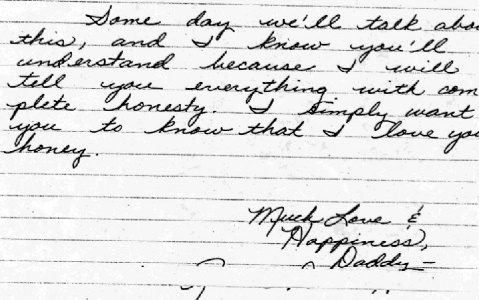 Some day we'll talk abou
this, and I know you'll
understand because I will
tell you everything with com
plete honesty. I simply want
you to know that I love you
honey.
Much Love &
Happiness,
Daddy–